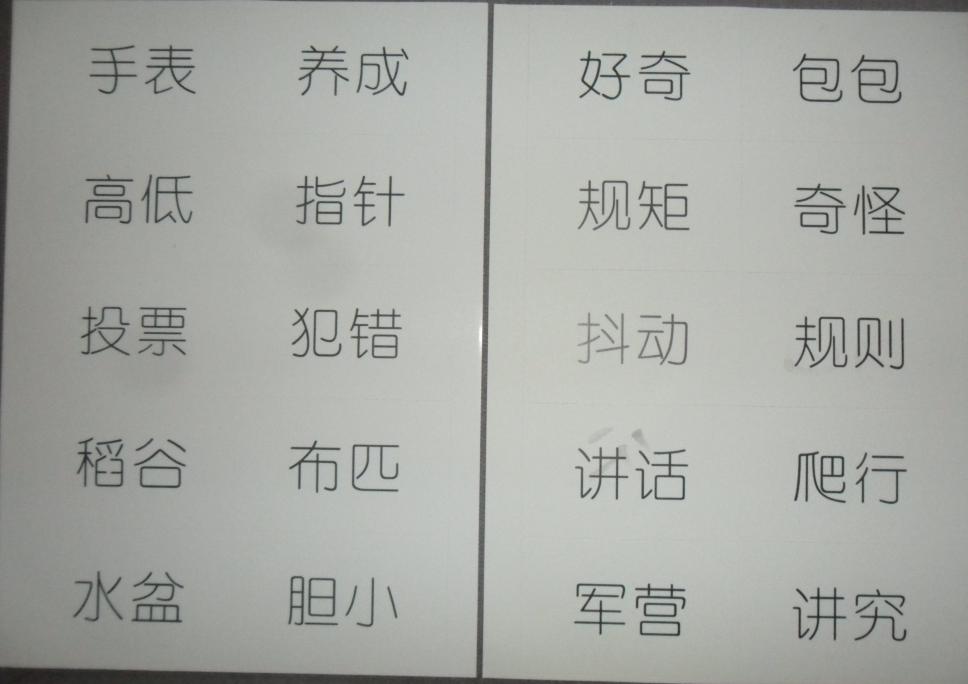 手表 养成
高低 指针
投票 犯错
稻谷 布匹
水盆 胆小
好奇 包包
规矩 奇怪
抖动 规则
讲话 爬行
军营 讲究